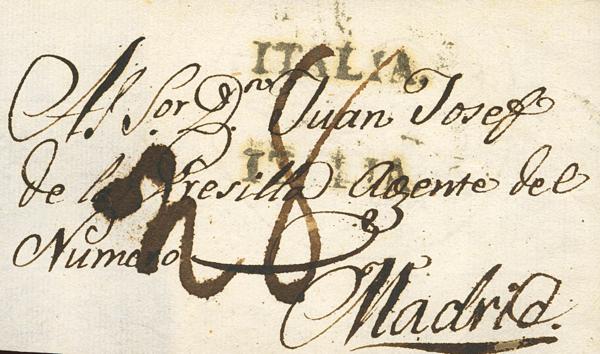 ITALIA.
Al Sor. Dn. Juan Josef
ITALIA
de la Presilla Agente del
Numero
Madrid.